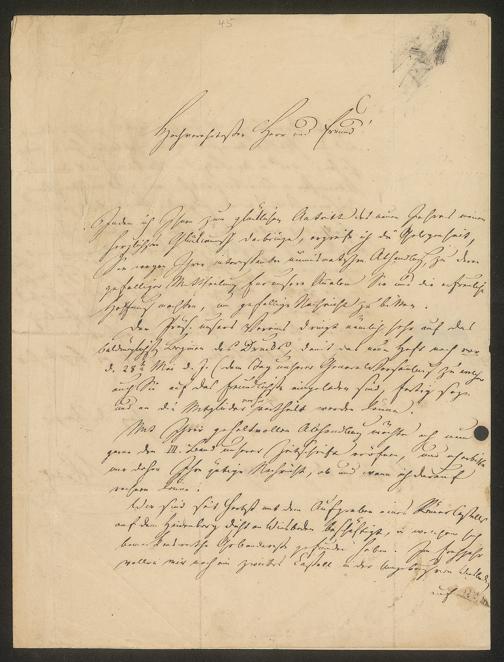 45
Hochverehrtester Herr und Freund!
Indem ich Ihnen zum glücklichen Antritt des neuen Jahres meinen
herzlichsten Glückwunsch darbringe, ergreife ich die Gelegenheit,
Sie wegen Ihrer interessanten numismatischen Abhandlung, zu deren
gefälliger Mittheilung für unsere Annalen Sie uns die erfreuliche
Hoffnung machten, um gefällige Nachricht zu bitten.
Der Präs. unseres Vereins dringt nämlich sehr auf das
baldmöglichste Beginnen des Drucks, damit das neue Heft noch vor
d. 28ten Mai d. J. (dem Tag unserer Generalversammlung, zu welcher
auch Sie auf das freundlichste eingeladen sind, fertig sey
und an die Mitglieder vertheilt werden könne.
Mit Ihrer gehaltvollen Abhandlung möchten wir nun
gern den III. Band unserer Zeitschrift eröffnen, und ich erbitte
mir daher Ihre gütige Nachricht, ob und wann ich darauf
rechnen könne.
Wir sind seit Herbst mit dem Aufgraben eines Römer Castells
auf dem Heidenberg dicht an Wiesbaden beschäftigt, in welchem sich
bemerkenswerthe Gebäudereste gefunden haben. Im Frühjahr
wollen wir noch ein zweites Castell in der Umgebung von Wiesbaden